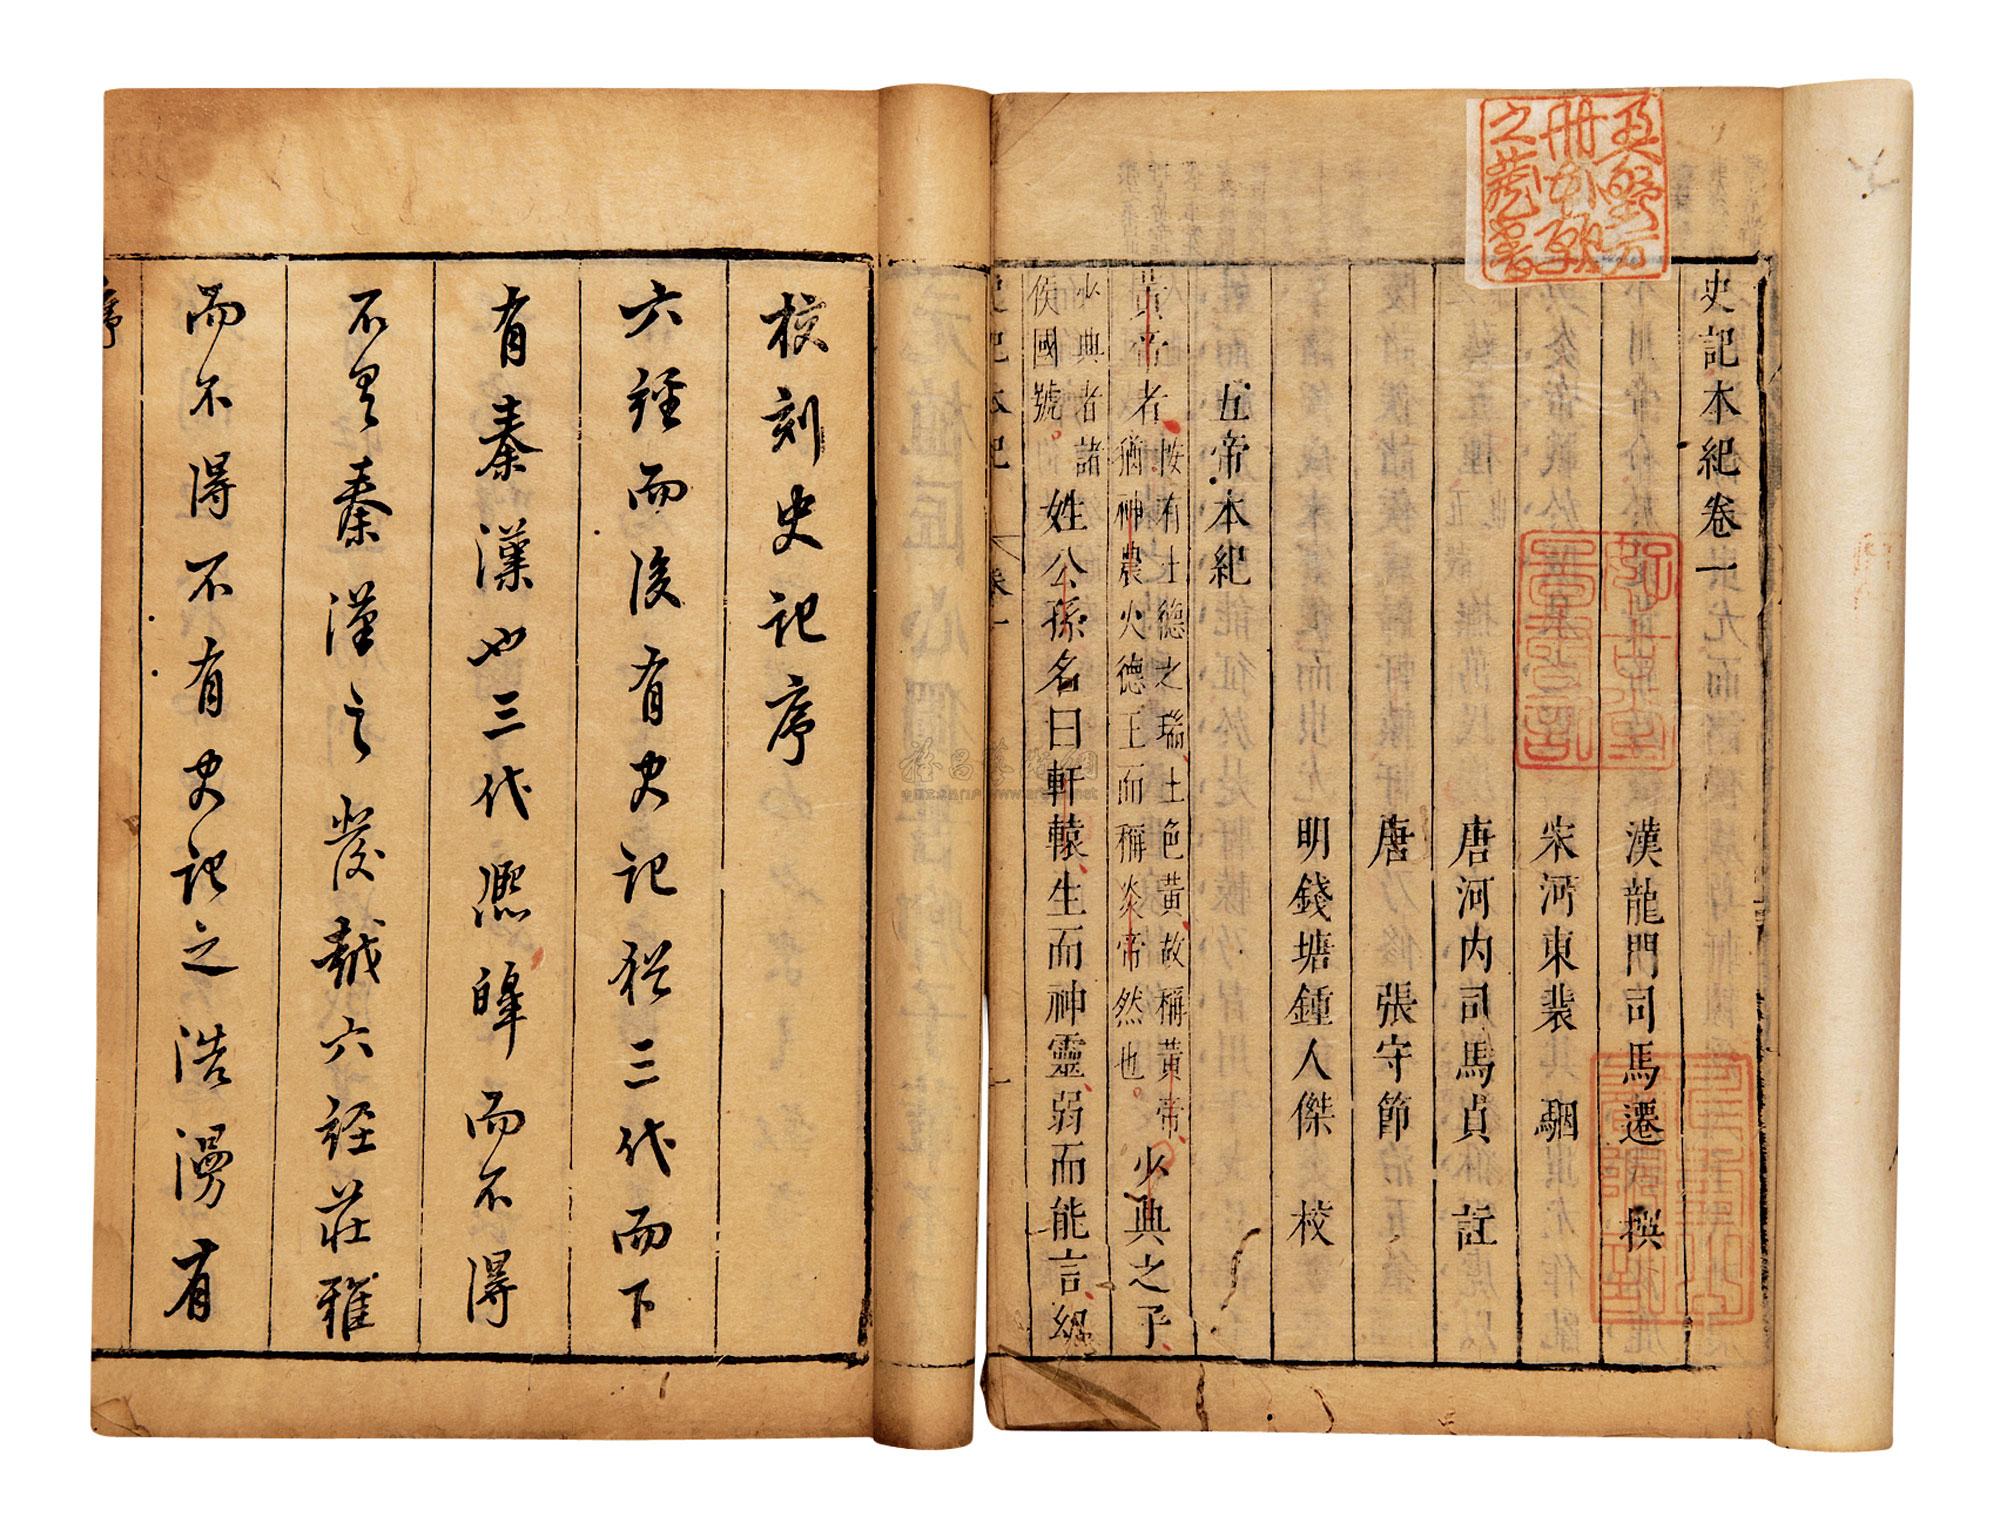 史記本紀卷一
漢龍門司馬遷撰
宋河東裴駰
唐河内司馬貞註
唐張守節
明錢塘鍾人傑校
五帝本紀
黃帝者按有土德之瑞土色黃故稱黃帝猶神農火德王而稱炎帝然也少典之子
少典者諸侯國號姓公孫名曰軒轅生而神靈弱而能言㓜
史記本紀 卷一 一
校刻史記序
六經而後有史記猶三代而下
有秦漢也三代熈皞而不得
不秦漢之發越六經莊雅
而不得不有史記之浩漫有
序